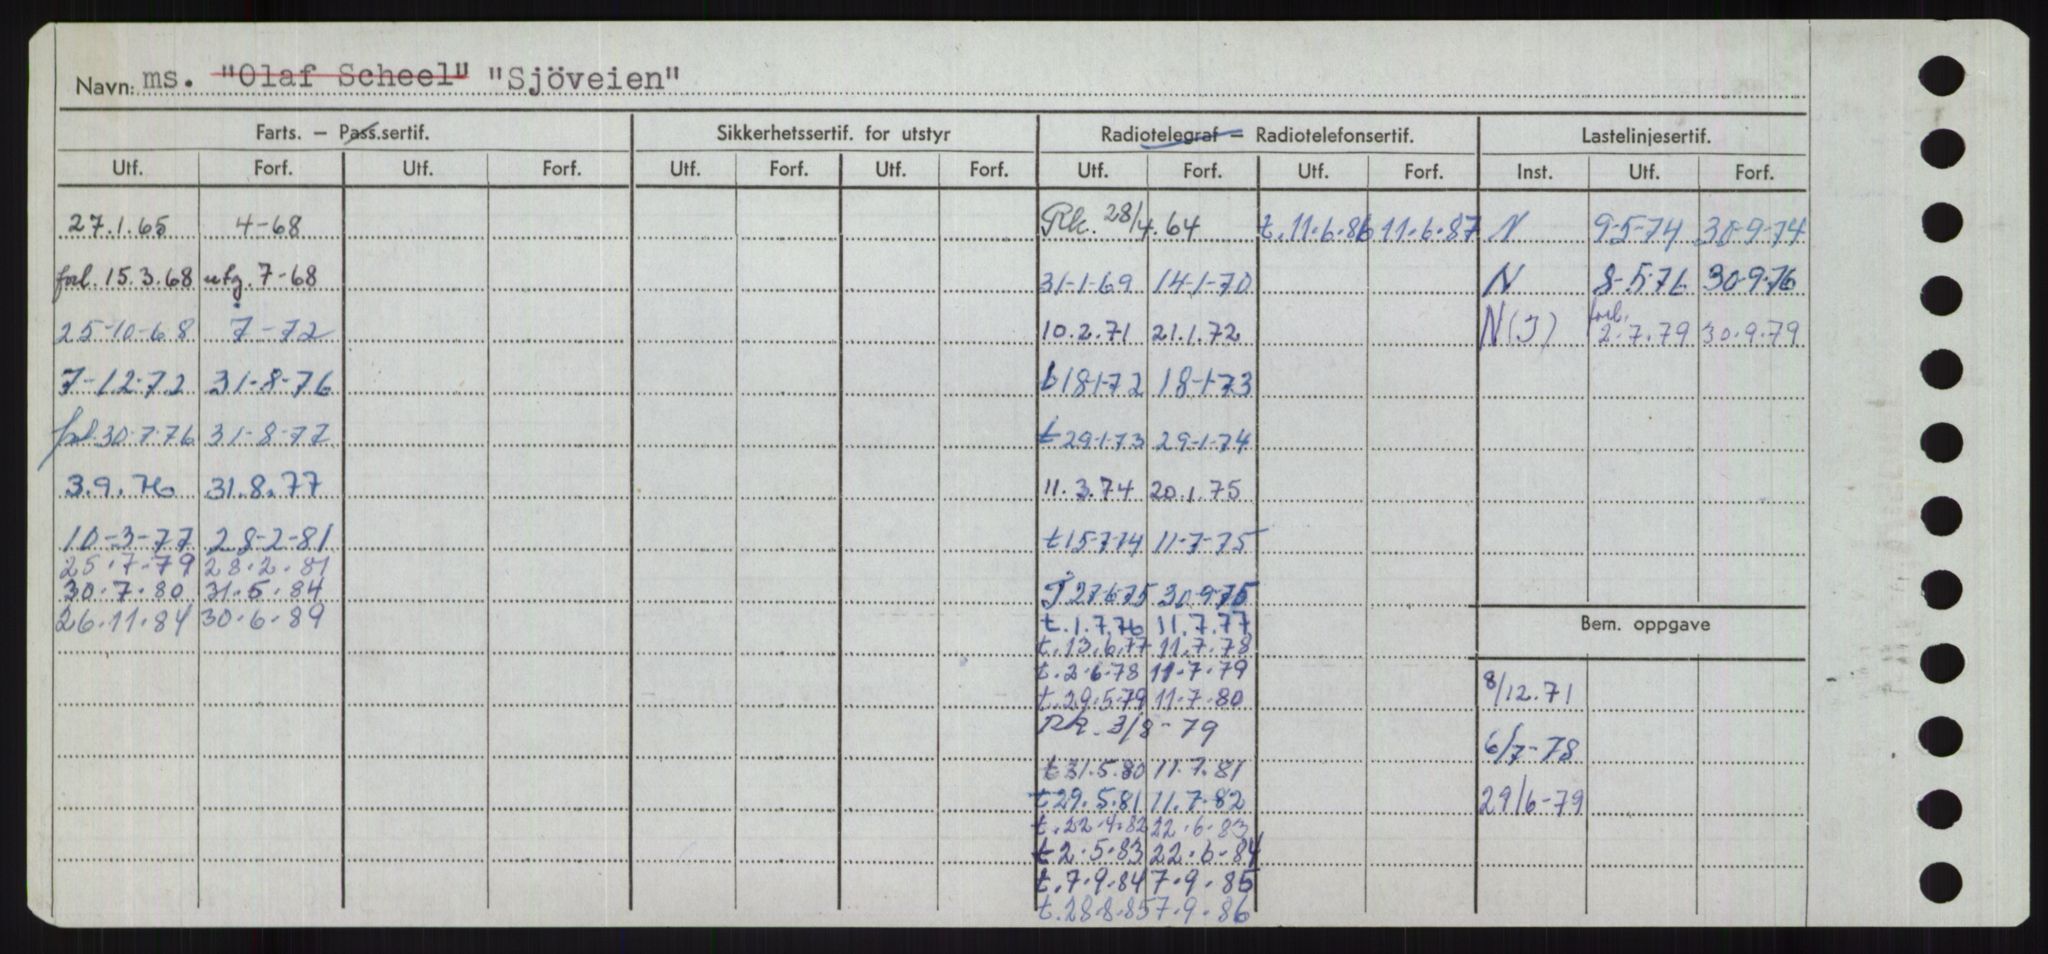 Navn: ms. "Olaf Scheel" "Sjöveien"
Farts. — Pass.sertif. Sikkerhetssertif. for utstyr Radiotelegraf — Radiotelefonsertif. Lastelinjesertif.
Utf. Forf. Utf. Forf. Utf. Forf. Utf. Forf. Utf. Forf. Utf. Forf. Inst. Utf. Forf.
27.1.65 4-68 Rk. 28/4.64 t.11.6.86 11.6.87 N 9-5-74 30-9-74
forl. 15.3.68 utg. 7-68 31-1-69 14-1-70 N 8-5-76 30-9-76
25-10-68 7-72 10.2.71 21.1.72 N(J) forl. 2.7.79 30.9.79
7-12-72 31-8-76 t 18-1-72 18-1-73
forl. 30-7-76 31-8-77 t 29-1-73 29-1-74
3.9.76 31.8.77 11.3.74 20.1.75
10-3-77 28-2-81 t 15-7-74 11-7-75
25.7.79 28.2.81
30.7.80 31.5.84 J 27-6-75 30-9-75
26.11.84 30.6.89 t.1.7.76 11.7.77 Bem. oppgave
t.13.6.77 11.7.78
t.2.6.78 11.7.79
t.29.5.79 11.7.80 8/12.71
Rk. 3/8-79
6/7-78
t 31.5.80 11.7.81
t 29.5.81 11.7.82 29/6-79
t.22.4.82 22.6.83
t 2.5.83 22.6.84
t.7.9.84 7.9.85
t.28.8.85 7.9.86